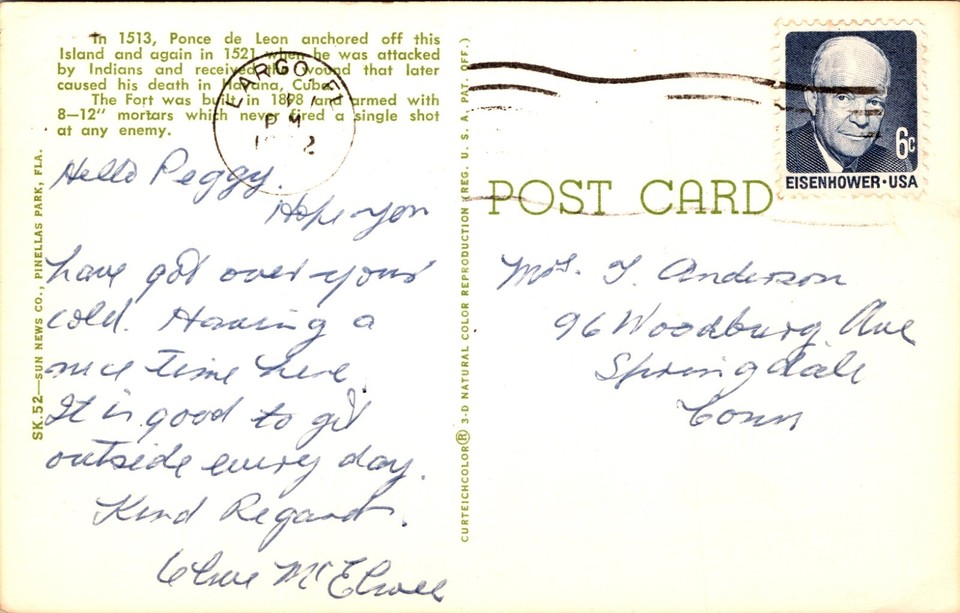 In 1513, Ponce de Leon anchored off this
Island and again in 1521 when he was attacked
by Indians and received the wound that later
caused his death in Havana, Cuba.
The Fort was built in 1898 and armed with
8—12" mortars which never fired a single shot
at any enemy.
SK.52—SUN NEWS CO., PINELLAS PARK, FLA.
LARGO, FL
PM
Hello Peggy.
Hope you
have got over your
cold. Having a
nice time here.
It is good to get
outside every day.
Kind Regards.
McElwee
CURTEICHCOLOR® 3-D NATURAL COLOR REPRODUCTION (REG. U. S. A. PAT. OFF.)
6c
EISENHOWER·USA
POST CARD
Mrs. T. Anderson
96 Woodbury Ave
Springdale
Conn